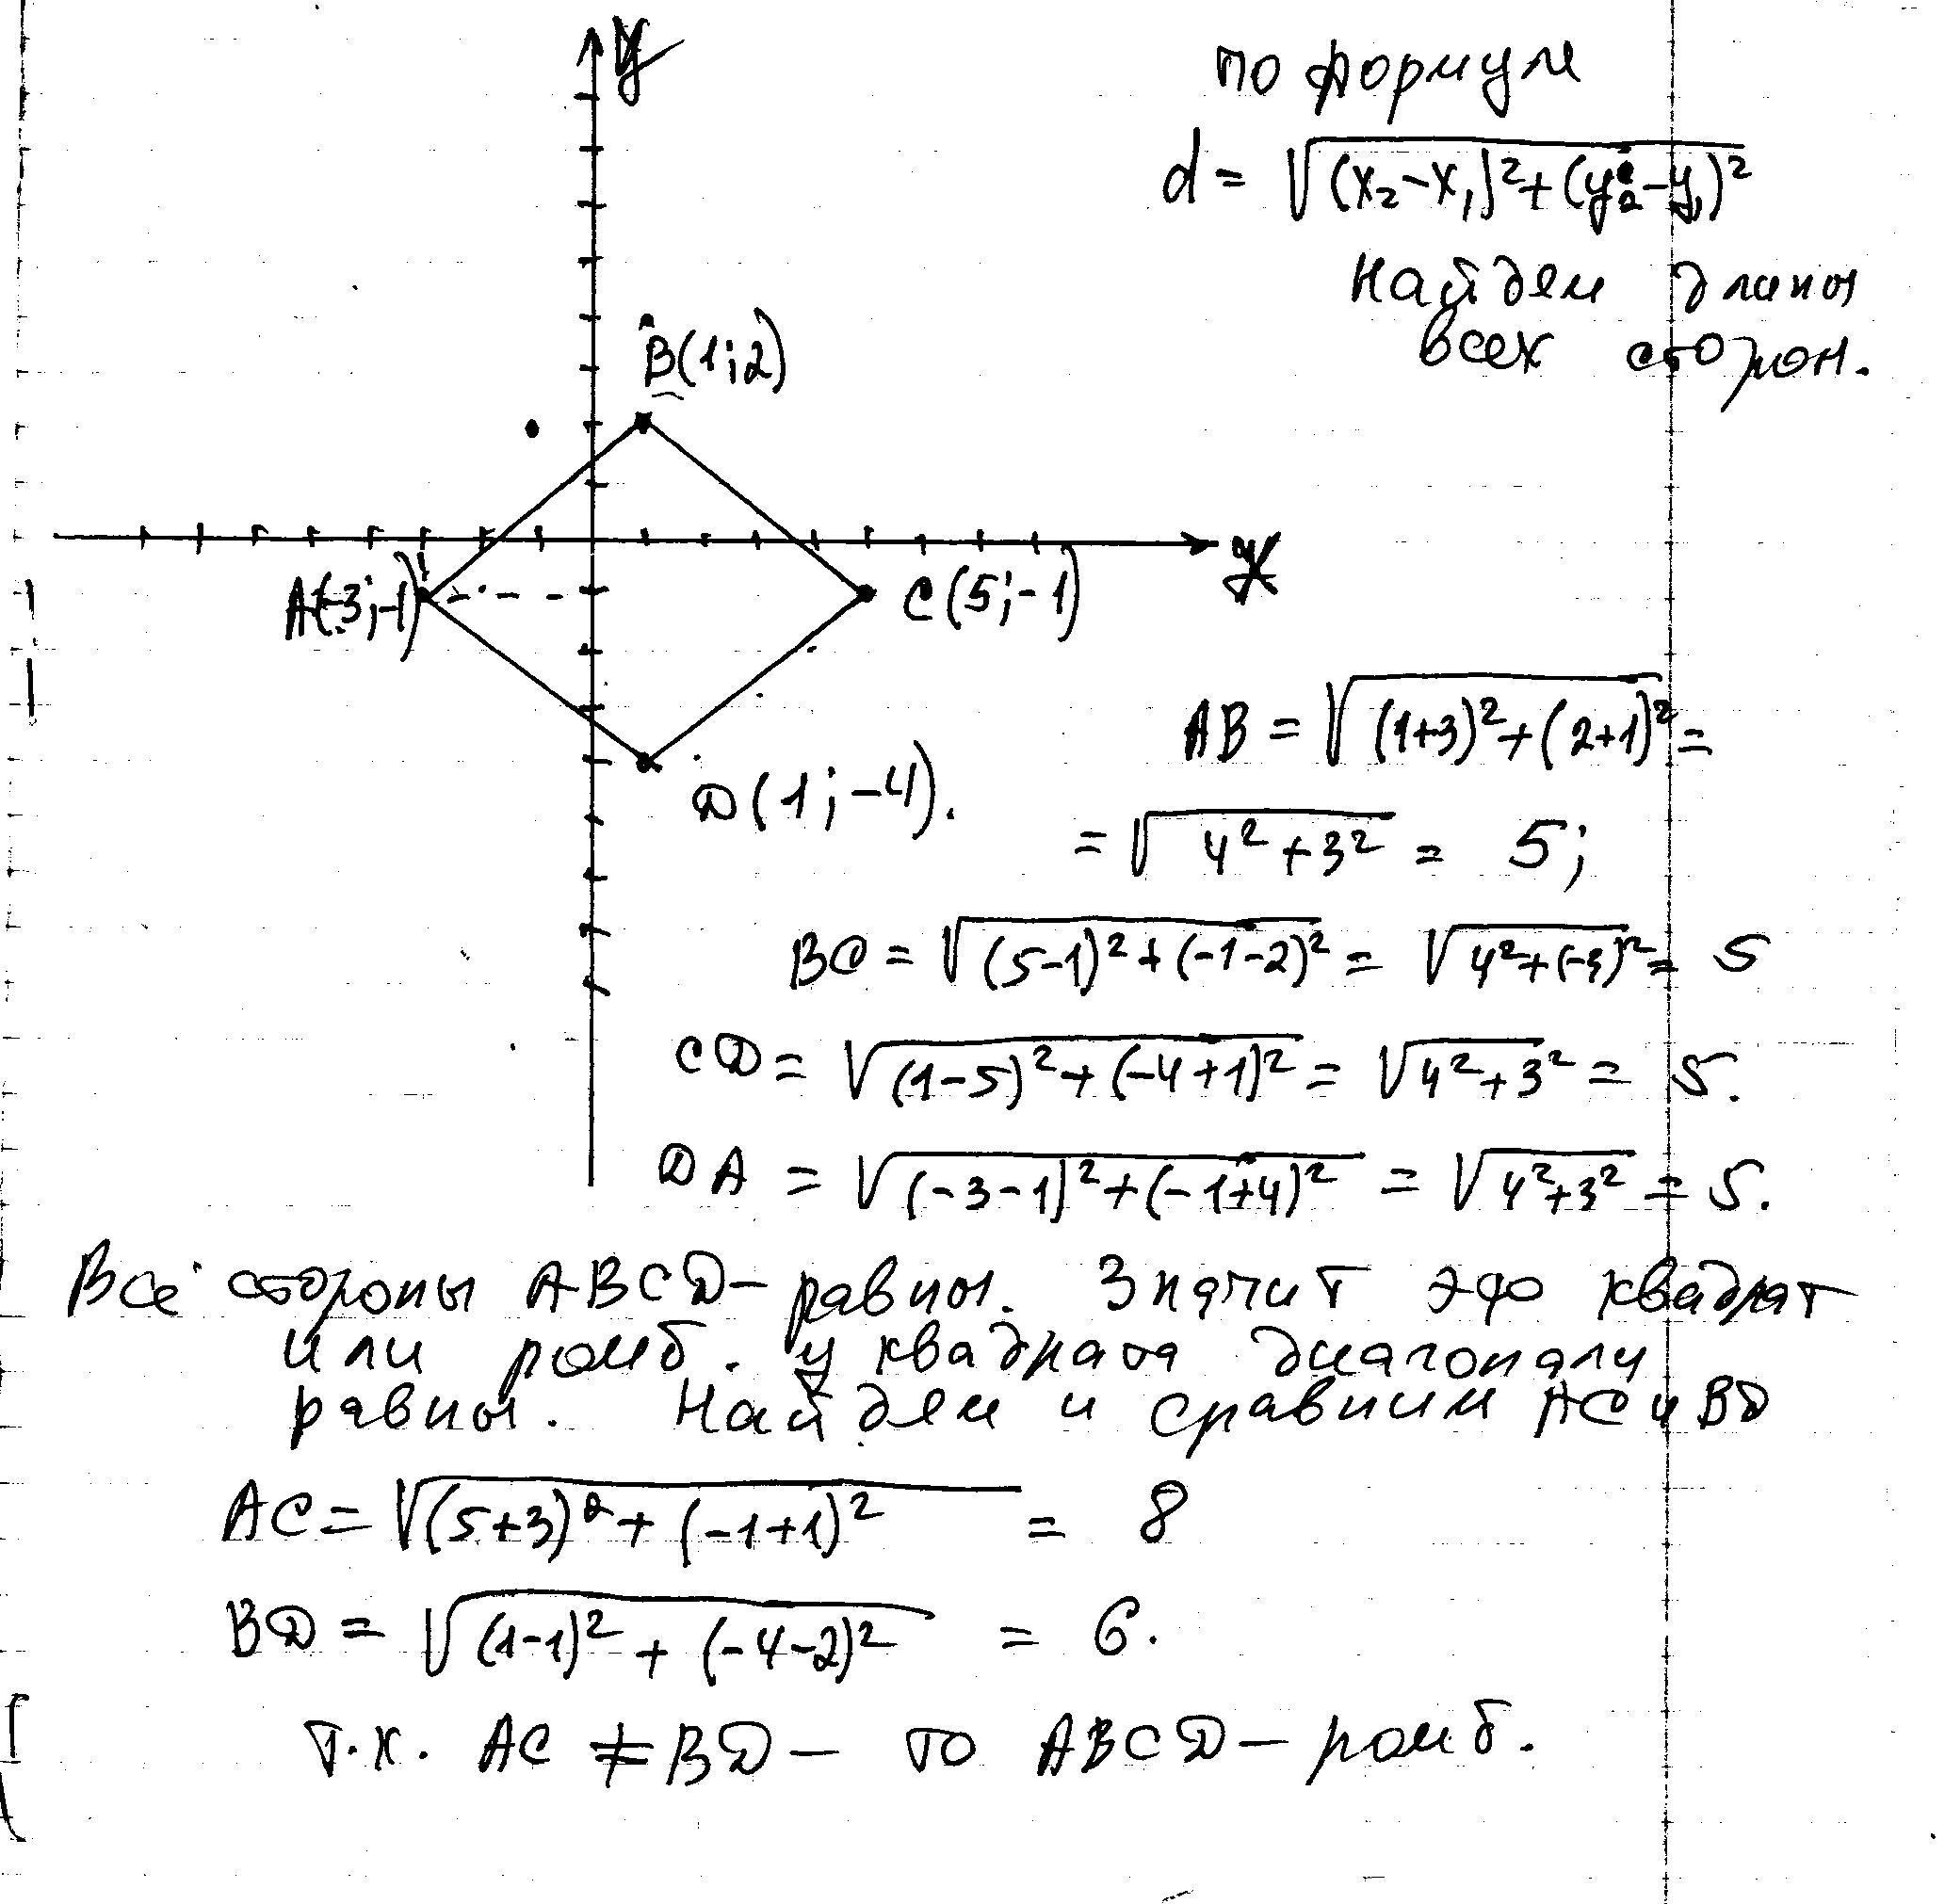 y
по формуле
d = √(x₂-x₁)²+(y₂-y₁)²
Найдем длины
всех сторон.
B(1;2)
x
A(-3;-1)
C(5;-1)
AB = √(1+3)²+(2+1)² =
D(1;-4).
= √4²+3² = 5;
BC = √(5-1)²+(-1-2)² = √4²+(-3)² = 5
CD = √(1-5)²+(-4+1)² = √4²+3² = 5.
DA = √(-3-1)²+(-1+4)² = √4²+3² = 5.
Все стороны ABCD - равны. Значит это квадрат
или ромб. у квадрата диагонали
равны. Найдем и сравним AC и BD
AC = √(5+3)²+(-1+1)² = 8
BD = √(1-1)²+(-4-2)² = 6.
т.к. AC ≠ BD — то ABCD — ромб.